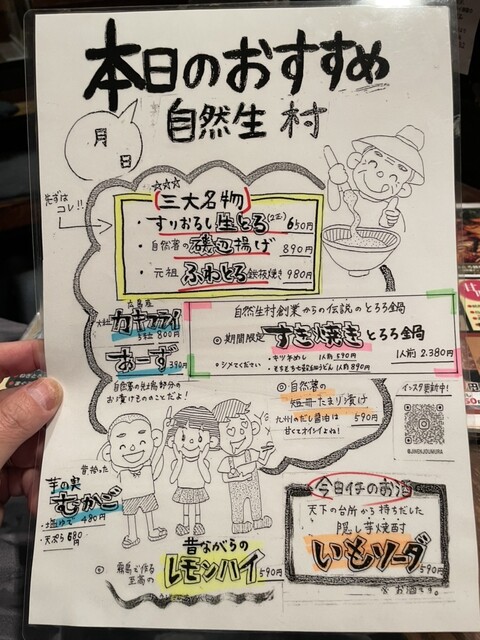 本日のおすすめ
自然生村
月
日
まずは
コレ!!
三大名物
・すりおろし生とろ(2玉) 650円
・自然薯の磯辺揚げ 890円
・元祖ふわとろ鉄板焼き 980円
広島産
大粒カキフライ
5粒 800円
おーず 390円
自然薯の先端部分の
お漬けもののことだよ!
自然生村創業からの伝説のとろろ鍋
◎期間限定 すき焼きとろろ鍋
1人前 2.380円
1人前 590円
1人前 890円
◎自然薯の
短冊たまり漬け
九州のだし醤油は 590円
甘くてオイシイよね!
インスタ更新中!
@JINENJOUMURA
芋の実
むかご
・塩ゆで 490円
・天ぷら 680円
昔ながらの
レモンハイ 590円
今日イチのお酒
天下の台所から持ちだした
隠し芋焼酎
いもソーダ 590円